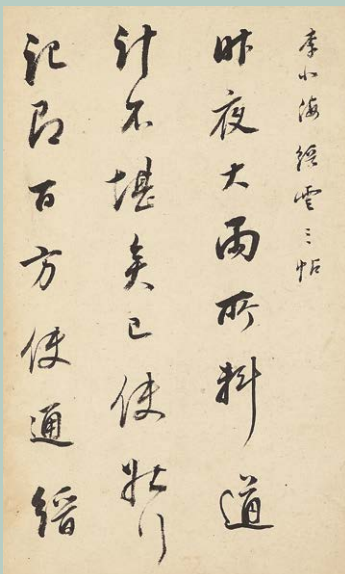 李北海縉雲三帖
昨夜大雨所料道
計不堪矣已使行
記即百方使通縉